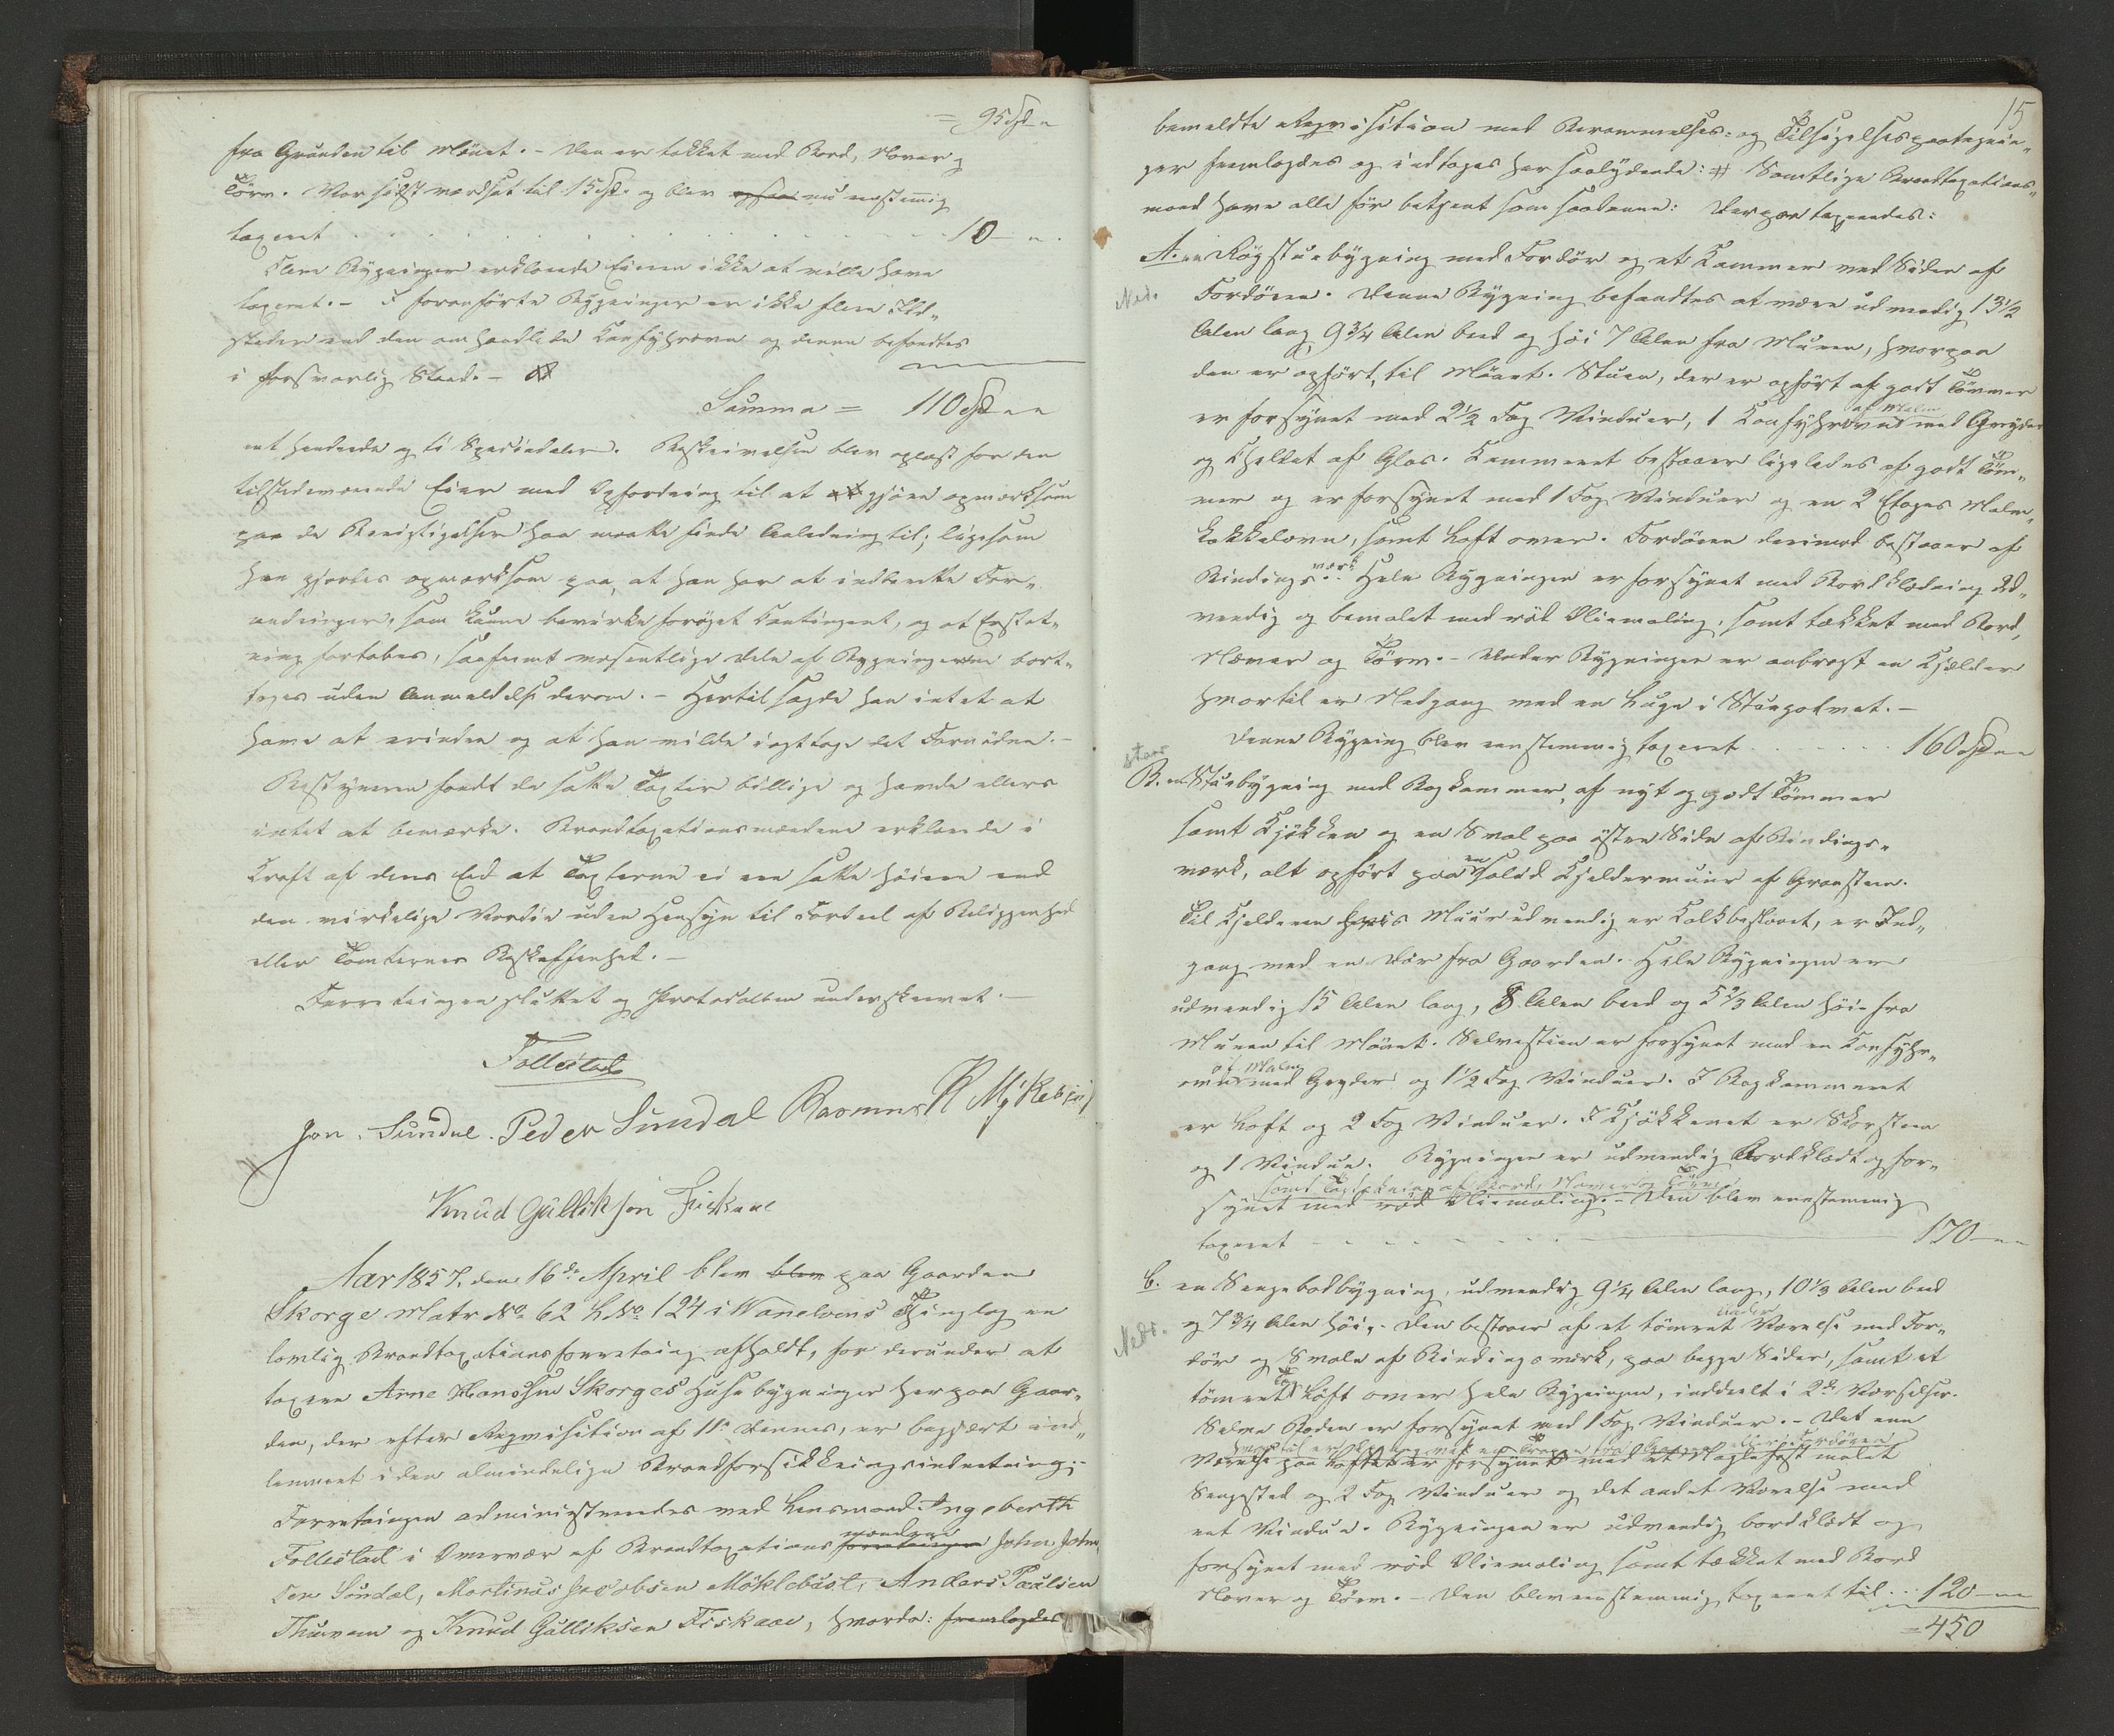 = 95 Spd "
fra Grunden til Mönet. – Den er tækket med Bord, Næver og
Törv. Var sidst værdsat til 15 Spd. og blev ogsaa nu eenstemmig
taxeret . . . . . . . . . . . . . . . 10 – " .
Flere Bygninger erklærede Eieren ikke at ville have
taxeret. – I foranförte Bygninger er ikke flere Ild-
steder end den omhandlede Konfyhrovn og denne befandtes
i forsvarlig Stand. –
Summa = 110 Spd " "
et hundrede og ti Speciedaler. Beskrivelsen blev oplæst for den
tilstedeværende Eier med Opfordring til at gjöre opmærksom
paa de Berigtigelser han maatte finde Anledning til; ligesom
han gjordes opmærksom paa, at han har at indberette For-
andringer, som kunne bevirke foröget Contingent, og at Erstat-
ning fortabes, saafremt væsentlige Dele af Bygningerne bort-
tages uden Anmeldelse derom. – Hertil sagde han intet at
have at erindre og at han vilde iagttage det Fornödne. –
Bestyreren fandt de satte Taxter billige og havde ellers
intet at bemærke. Brandtaxationsmændene erklærede i
Kraft af deres Eed at Taxterne ei ere satte höiere end
den virkelige Værdie uden Hensyn til Fordeel af Beliggenhed
eller Tomternes Beskaffenhed. –
Forretningen sluttet og Protocollen underskrevet. –
Follestad
Jon. Sundal. Peder Sundal Rasmus R Myklebust
Knud Gullikson Fiskaae
Aar 1857, den 16de April blev blev paa Gaarden
Skorge Matr No. 62 L No. 124 i Wanelvens Thinglag en
lovlig Brandtaxationsforretning afholdt, for derunder at
taxere Arne Hanssen Skorges Huusebygninger her paa Gaar-
den, der efter Reqvisition af 11te dennes, er begjært ind-
lemmet i den almindelige Brandforsikkringsindretning; –
Forretningen administreredes ved Lensmand Ingebreth
Follestad i Overvær af Brandtaxations forretningen mændene John John-
sen Sundal, Martinus Jacobsen Möklebust, Anders Paulsen
Thunem og Knud Gulliksen Fiskaae, hvorda: fremlagdes
15
bemeldte Reqvisition med Berammelses- og Tilsigelsespaategnin-
ger fremlagdes og indtages her saalydende: # Samtlige Brandtaxations-
mænd have alle för betjent som saadanne: Derpaa taxeredes:
A. en Rögstuebygning med Fordör og et Kammer ved Siden af
Ned.
Fordören. Denne Bygning befandtes at være udvendig 13 1/2
Alen lang, 9 3/4 Alen bred og höi 7 Alen fra Muren, hvorpaa
den er opfört, til Mönet. Stuen, der er opfört af godt Tömmer
er forsynet med 2 1/2 Fag Vinduer, 1 Konfyhrovn af Malm med Gryder
og Spjeldet af Glas. Kammeret bestaaer ligeledes af godt Töm-
mer og er forsynet med 1 Fag Vinduer og en 2 Etages Malm-
kakkelovn, samt Loft over. Fordören derimod bestaaer af
Bindingsværk. Hele Bygningen er forsynet med Bordklædning ud-
vendig og bemalet med röd Oliemaling, samt tækket med Bord,
Næver og Törv. – Under Bygningen er anbragt en Kjælder
hvortil er Nedgang med en Luge i Stuegolvet. –
Denne Bygning blev eenstemmig taxeret . . . . . 160 Spd " "
staar
B. en Stuebygning med Bagkammer, af nyt og godt Tömmer
samt Kjökken og en Sval paa östre Side af Bindings-
værk, alt opfört paa en solid Kjeldermuur af Graasteen.
Til Kjelderen hvis Muur udvendig er Kalkbeslaaet, er Ind-
gang med en Dör fra Gaarden. Hele Bygningen er
udvendig 15 Alen lang, 8 Alen bred og 5 2/3 Alen höi fra
Muren til Mönet. Selvestuen er forsynet med en Konfyhr-
ovn af Malm med Gryder og 1 1/2 Fag Vinduer. I Bagkammeret
er Loft og 2 Fag Vinduer. I Kjökkenet er Skorsteen
og 1 Vindue. Bygningen er udvendig Bordklædt og for-
samt Tagtækning af Bord, Næver og Törv
synet med röd Oliemaling. – Den blev eenstemmig
taxeret – – – – – – – 170 – " "
C. en Sengebodbygning, udvendig 9 1/4 Alen lang, 10 1/3 Alen bred
og 7 3/4 Alen höi. – Den bestaaer af et tömret under Værelse med For-
Nedr.
dör og Svale af Bindingsværk, paa begge Sider, samt et
tömret Loft over hele Bygningen, inddeelt i 2de Værelser.
Selve Boden er forsynet med 1 Fag Vinduer. – Det ene
Værelse paa Loftet er forsynet med et Naglefast malet
Sengested og 2 Fag Vinduer og det andet Værelse med
eet Vindue. Bygningen er udvendig bordklædt og
forsynet med röd Oliemaling samt tækket med Bord
Næver og Törv. – Den blev eenstemmig taxeret til . . . 120 – " "
= 450